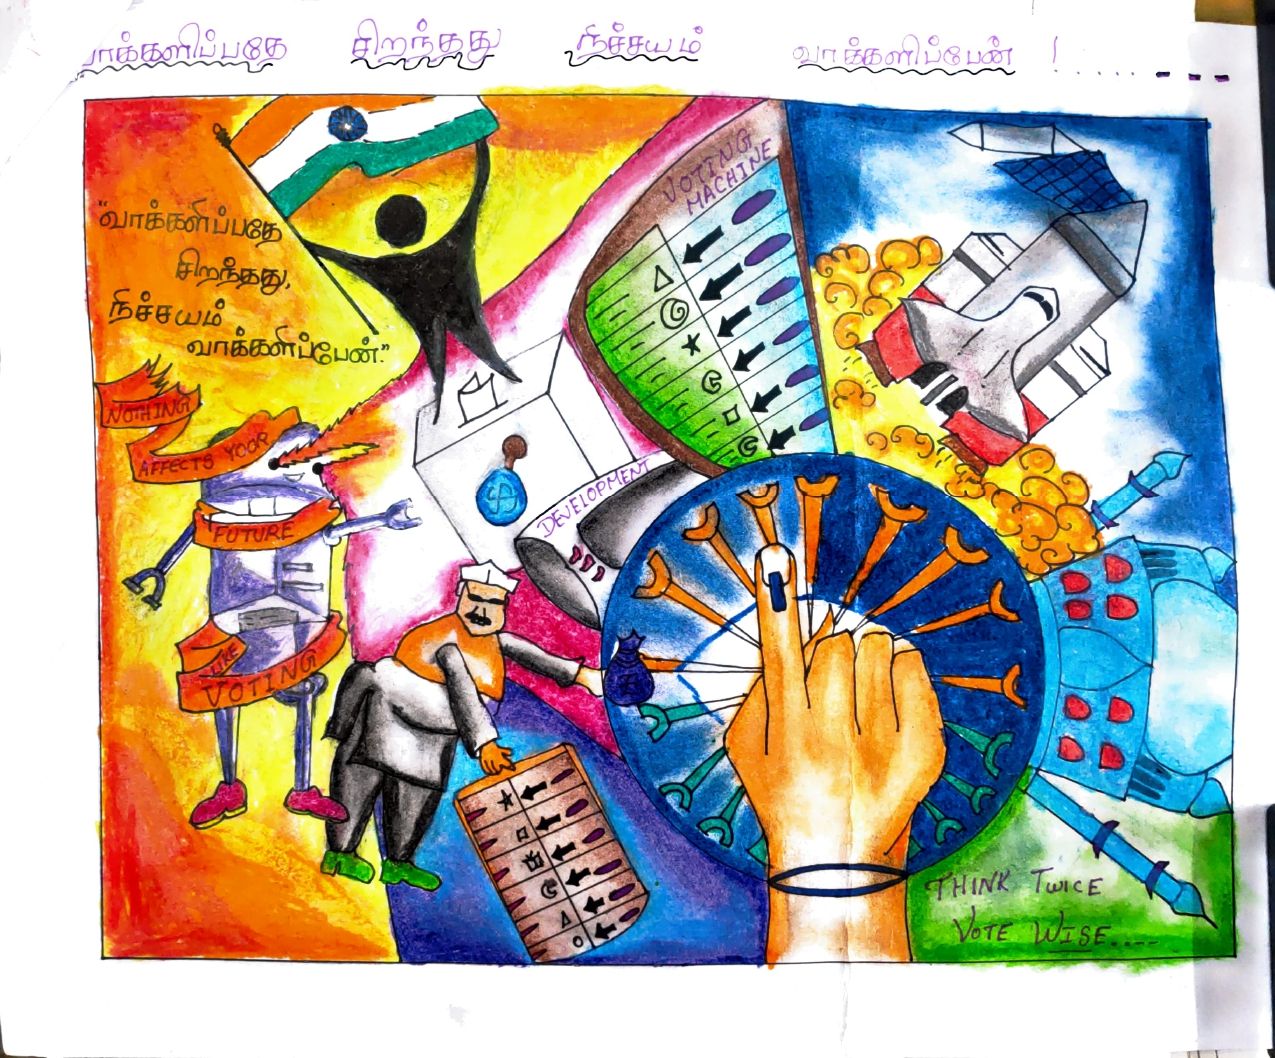 வாக்களிப்பதே சிறந்தது நிச்சயம் வாக்களிப்பேன் !
"வாக்களிப்பதே
சிறந்தது,
நிச்சயம்
வாக்களிப்பேன்."
VOTING
MACHINE
NOTHING
AFFECTS YOOR
FUTURE
LIKE
VOTING
DEVELOPMENT
THINK TWICE
VOTE WISE....